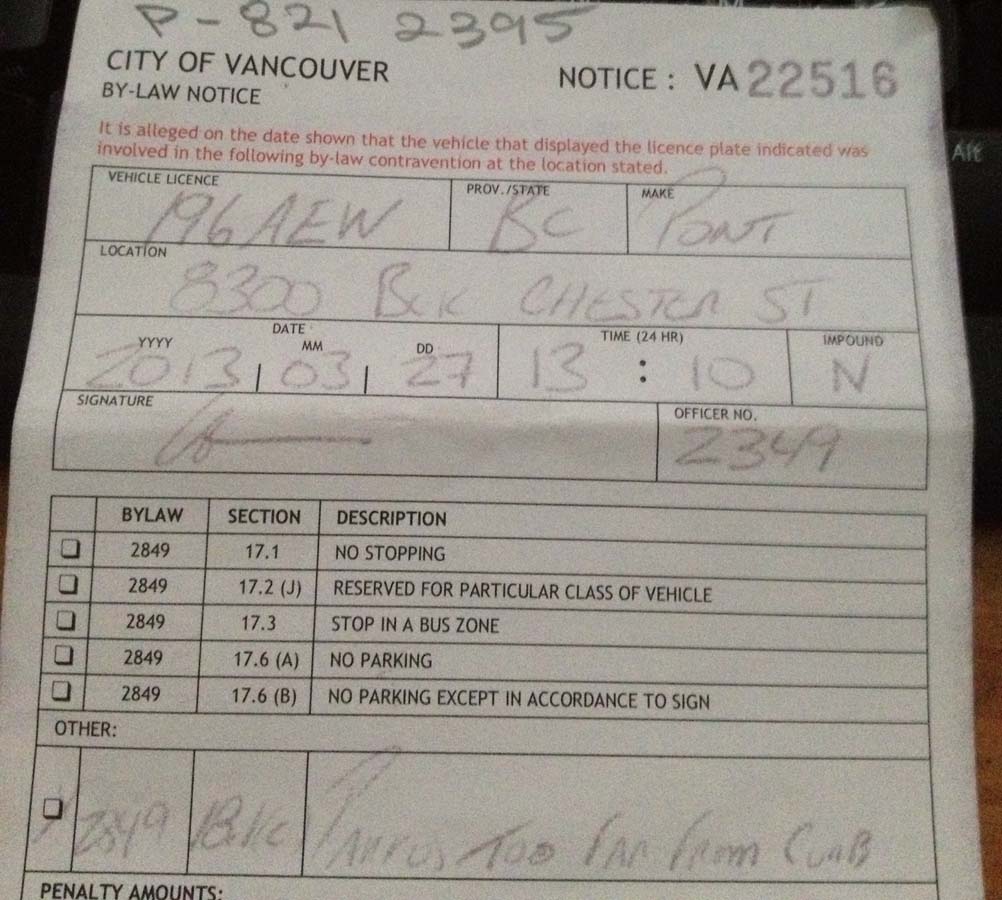 P-821 2395
CITY OF VANCOUVER
BY-LAW NOTICE
NOTICE : VA 22516
It is alleged on the date shown that the vehicle that displayed the licence plate indicated was
involved in the following by-law contravention at the location stated.
VEHICLE LICENCE PROV./STATE MAKE
196AEW BC PONT
LOCATION
8300 BLK CHESTER ST
DATE TIME (24 HR) IMPOUND
YYYY MM DD
2013 03 27 13 : 10 N
SIGNATURE OFFICER NO.
2349
BYLAW SECTION DESCRIPTION
2849 17.1 NO STOPPING
2849 17.2 (J) RESERVED FOR PARTICULAR CLASS OF VEHICLE
2849 17.3 STOP IN A BUS ZONE
2849 17.6 (A) NO PARKING
2849 17.6 (B) NO PARKING EXCEPT IN ACCORDANCE TO SIGN
OTHER:
2849 TOO FAR FROM CURB
PENALTY AMOUNTS:
Alt